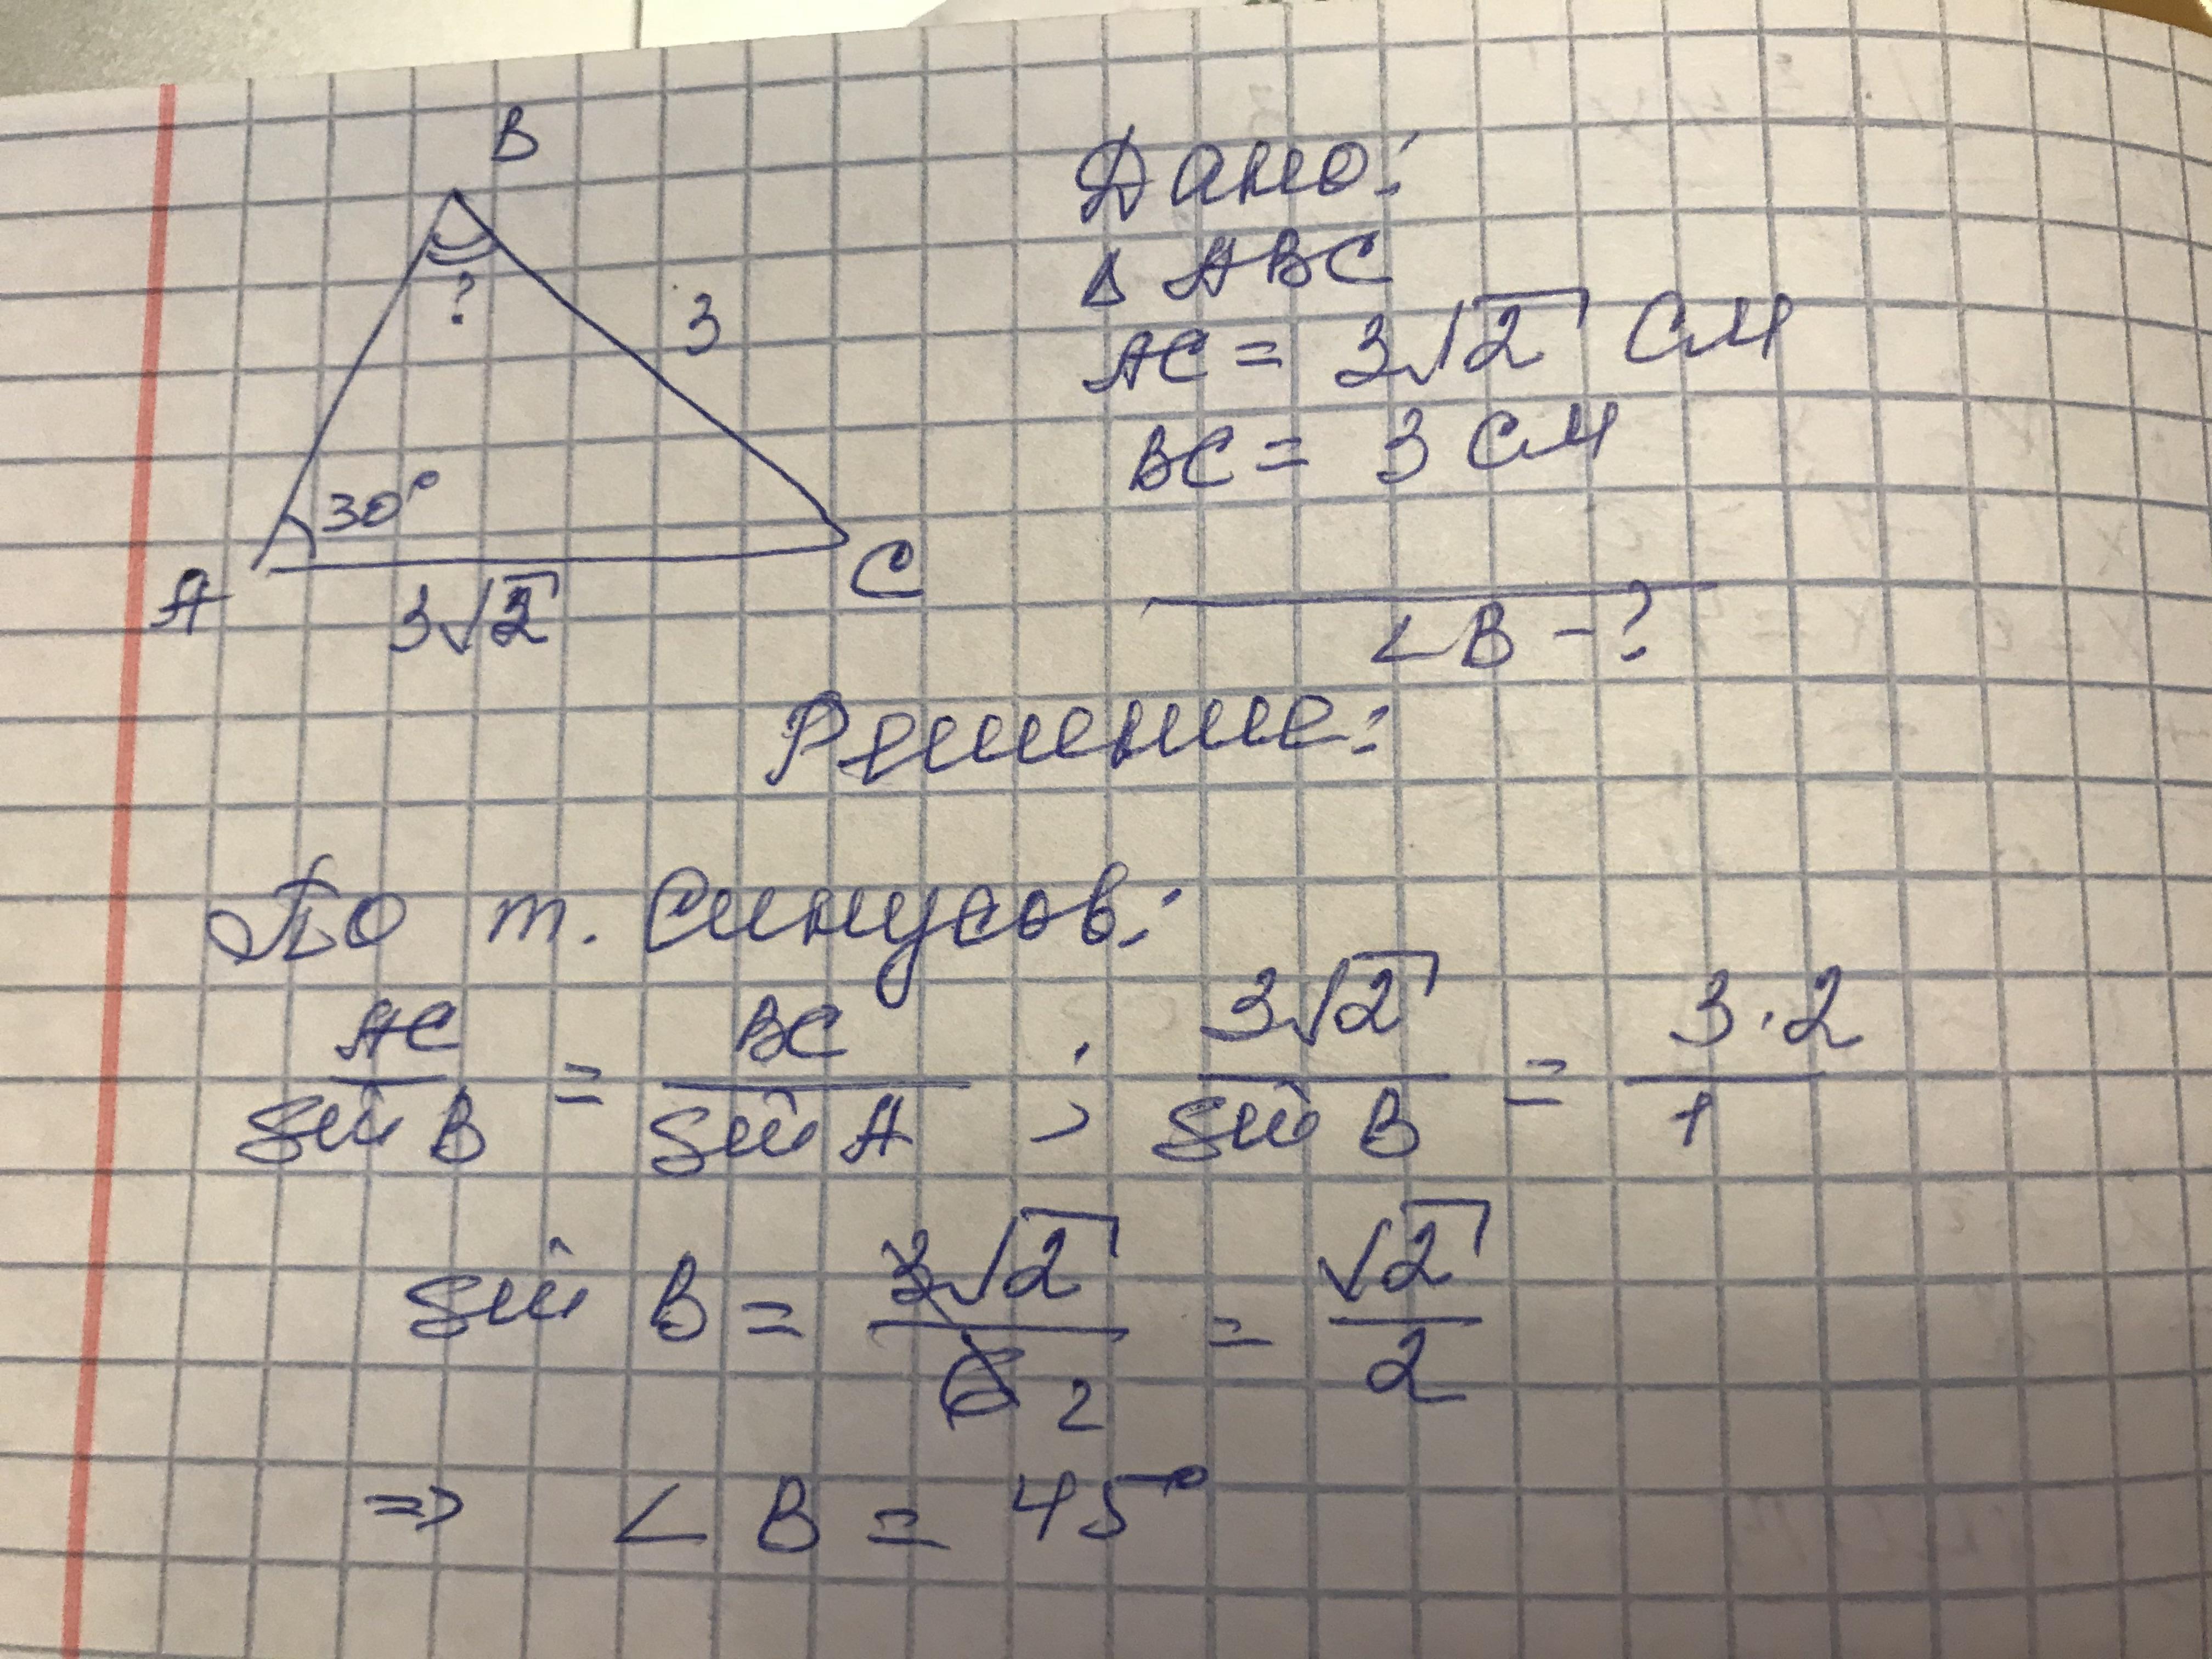 B
?
3
30°
A
C
3√2
Дано:
Δ ABC
AC = 3√2 см
BC = 3 см
∠B - ?
Решение:
По т. Синусов:
AC/sin B = BC/sin A ; 3√2/sin B = 3·2/1
sin B = 3√2/6 2 = √2/2
=> ∠ B = 45°